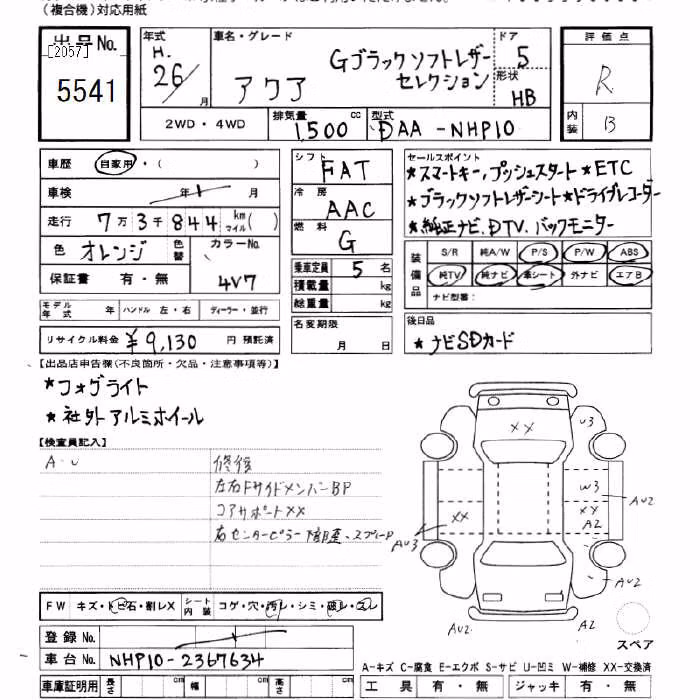 (複合機)対応用紙
出品No.
[2057]
5541
年式
H.
26/
月
車名・グレード
アクア
Gブラックソフトレザー
セレクション
ドア
5
形状
HB
評価点
R
内装
B
2WD・4WD
排気量
1,500 cc
型式
DAA-NHP10
車歴 自家用・( )
車検 年 月
走行 7万3千844 km マイル( )
色 オレンジ 色替
カラーNo.
4V7
保証書 有・無
モデル年式 年 ハンドル 左・右 ディーラー・並行
リサイクル料金 ¥9,130 円 預託済
シフト
FAT
冷房
AAC
燃料
G
乗車定員 5 名
積載量 kg
総重量 kg
名変期限
月 日
セールスポイント
★スマートキー,プッシュスタート★ETC
★ブラックソフトレザーシート★ドライブレコーダー
★純正ナビ,DTV,バックモニター
装備品
S/R 純A/W P/S P/W ABS
純TV 純ナビ 革シート 外ナビ エアB
ナビ型番:
後日品
★ナビSDカード
【出品店申告欄(不良箇所・欠品・注意事項等)】
★フォグライト
★社外アルミホイール
【検査員記入】
A・U
修復
左右FサイドメンバーBP
コアサポートXX
右センターピラー
FW キズ・トビ石・割レX
シート内装 コゲ・穴・汚レ・シミ・破レ・スレ
登録No.
車台No. NHP10-2367634
車庫証明用 長さ cm 幅 cm 高さ cm
XX
U3
W3
AU2
XX
A2
XX
AU3
AU2
AU2
A2
スペア
A-キズ C-腐食 E-エクボ S-サビ U-凹ミ W-補修 XX-交換済
工具 有・無 ジャッキ 有・無